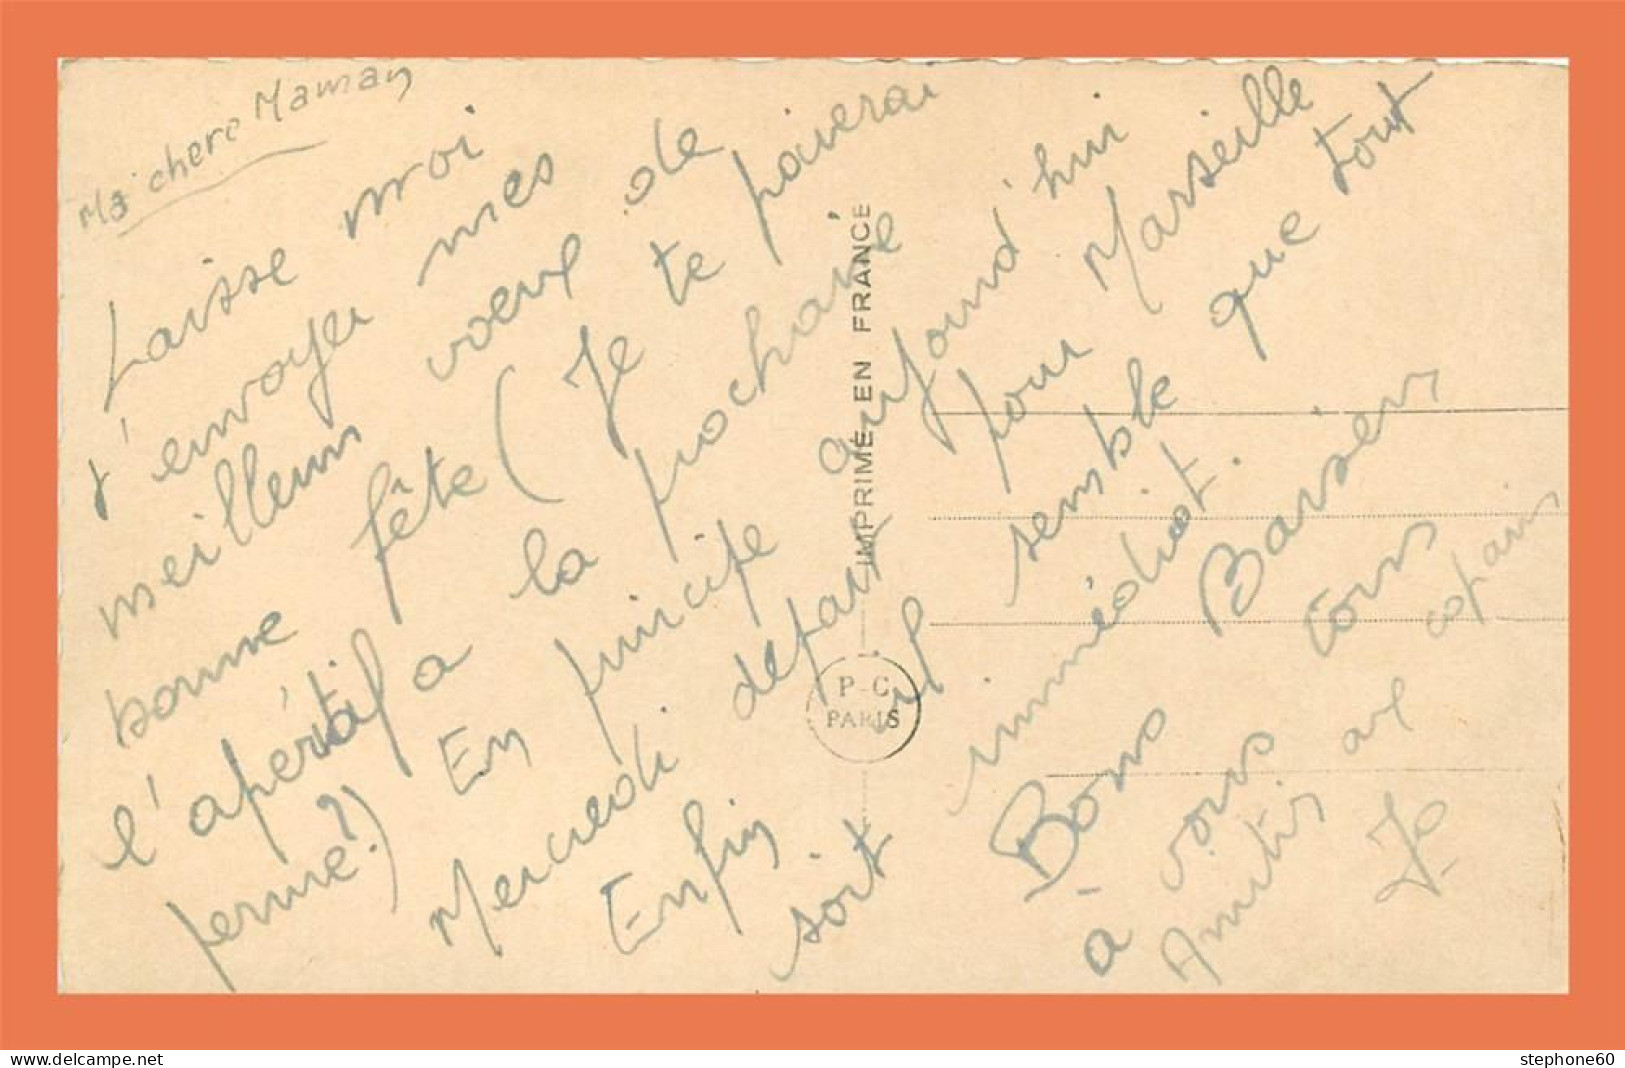 Ma chere Maman
Laisse moi
t'envoyer mes
meilleurs voeux de
bonne fête (Je te paierai
l'apéritif a la prochaine
perme?) En principe aujourd'hui
Mercredi départ pour Marseille
Enfin il semble que tout
soit immédiat.
Bons Baisers
à vous tous
Amitis aux copains
Jo
IMPRIMÉ EN FRANCE
P-C
PARIS
www.delcampe.net
stephone60